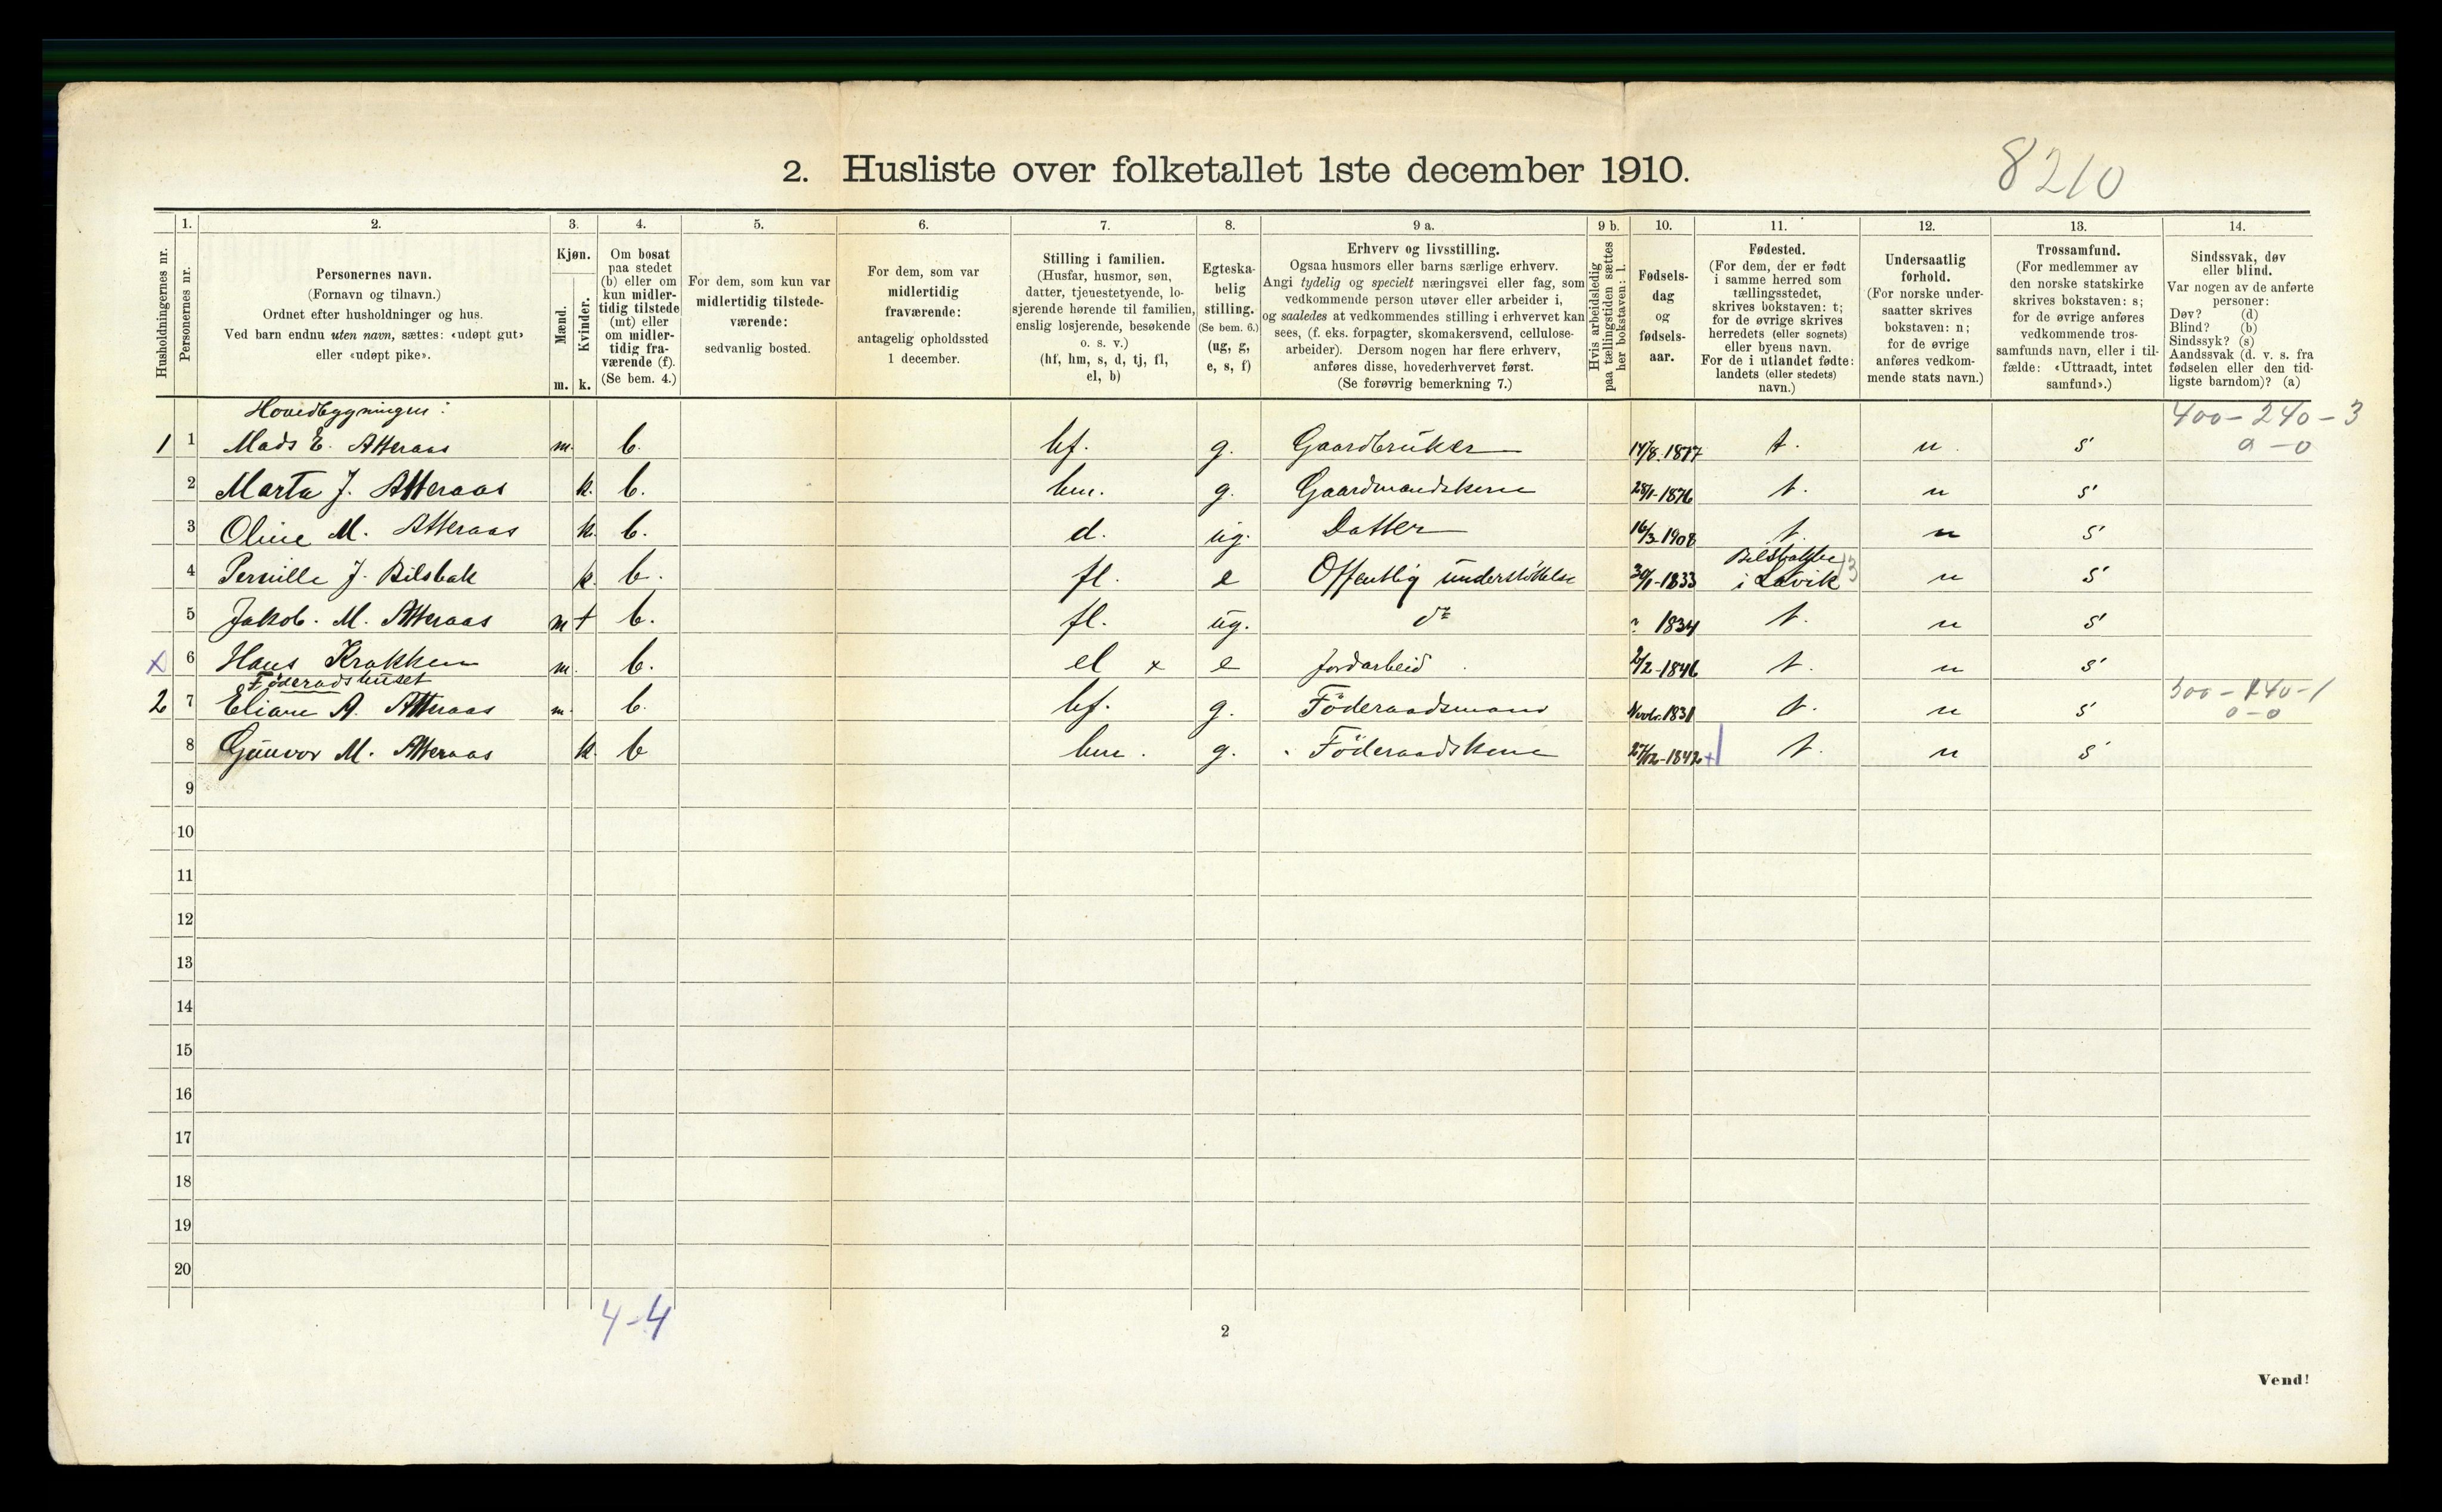 2. Husliste over folketallet 1ste december 1910.
8210
Husholdningernes nr.
1.
Personernes nr.
2.
Personernes navn.
(Fornavn og tilnavn.)
Ordnet efter husholdninger og hus.
Ved barn endnu uten navn, sættes: «udøpt gut»
eller «udøpt pike».
3.
Kjøn.
Mænd.
Kvinder.
m. k.
4.
Om bosat
paa stedet
(b) eller om
kun midler-
tidig tilstede
(mt) eller
om midler-
tidig fra-
værende (f).
(Se bem. 4.)
5.
For dem, som kun var
midlertidig tilstede-
værende:
sedvanlig bosted.
6.
For dem, som var
midlertidig
fraværende:
antagelig opholdssted
1 december.
7.
Stilling i familien.
(Husfar, husmor, søn,
datter, tjenestetyende, lo-
sjerende hørende til familien,
enslig losjerende, besøkende
o. s. v.)
(hf, hm, s, d, tj, fl,
el, b)
8.
Egteska-
belig
stilling.
(Se bem. 6.)
(ug, g,
e, s, f)
9 a.
Erhverv og livsstilling.
Ogsaa husmors eller barns særlige erhverv.
Angi tydelig og specielt næringsvei eller fag, som
vedkommende person utøver eller arbeider i,
og saaledes at vedkommendes stilling i erhvervet kan
sees, (f. eks. forpagter, skomakersvend, cellulose-
arbeider). Dersom nogen har flere erhverv,
anføres disse, hovederhvervet først.
(Se forøvrig bemerkning 7.)
9 b.
Hvis arbeidsledig
paa tællingstiden sættes
her bokstaven: l.
10.
Fødsels-
dag
og
fødsels-
aar.
11.
Fødested.
(For dem, der er født
i samme herred som
tællingsstedet,
skrives bokstaven: t;
for de øvrige skrives
herredets (eller sognets)
eller byens navn.
For de i utlandet fødte:
landets (eller stedets)
navn.)
12.
Undersaatlig
forhold.
(For norske under-
saatter skrives
bokstaven: n;
for de øvrige
anføres vedkom-
mende stats navn.)
13.
Trossamfund.
(For medlemmer av
den norske statskirke
skrives bokstaven: s;
for de øvrige anføres
vedkommende tros-
samfunds navn, eller i til-
fælde: «Uttraadt, intet
samfund».)
14.
Sindssvak, døv
eller blind.
Var nogen av de anførte
personer:
Døv? (d)
Blind? (b)
Sindssyk? (s)
Aandssvak (d. v. s. fra
fødselen eller den tid-
ligste barndom)? (a)
Hovedbygningen:
400 - 240 - 3
1 1 Mads E. Atteraas m. b. hf. g. Gaardbruker 14/8.1877 t. n. s 0 - 0
2 Marta J. Atteraas k. b. hm. g. Gaardmandskone 28/1-1876 t. n s
3 Oline M. Atteraas k. b. d. ug. Datter 16/3-1908 t. n s
4 Pernille J. Bilsbak k. b. fl. e Offentlig understöttelse 30/1-1833 i Lavik n s
5 Jakob. M. Atteraas m + b. fl. ug. do ? 1834 t. n s
x 6 Hans Krakken m. b. el x e Jordarbeid 2/2-1846 t. n s
Föderadshuset
300 - 140 - 1
2 7 Eliam A. Atteraas m. b. hf. g. Föderaadsmand Novbr. 1831 t. n s 0 - 0
8 Gunvor M. Atteraas k. b hm. g. Föderaadskone 27/12-1842 + t. n s
9
10
11
12
13
14
15
16
17
18
19
20
4-4
2
Vend!